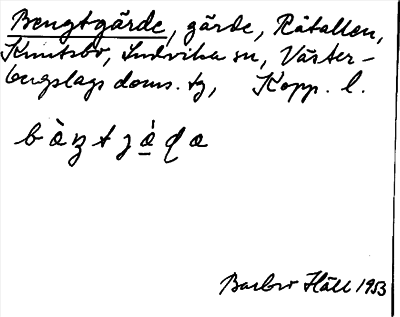 Bengtgärde, gärde, Råtallen,
Knutsbo, Ludvika sn, Väster-
bergslags doms. tg, Kopp. l.
Barbro Häll 1953